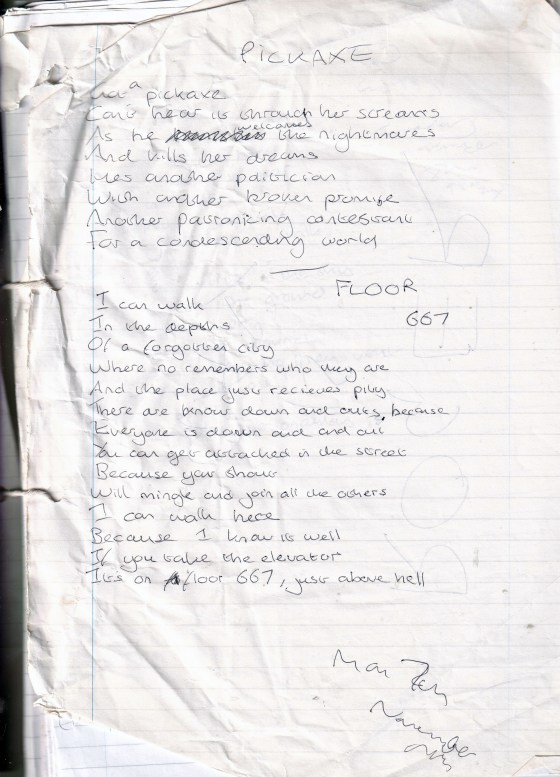 PICKAXE
a pickaxe
Can't hear it through her screams
As he welcomes the nightmares
And kills her dreams
He's another politician
With another broken promise
Another patronizing contestant
For a condescending world
FLOOR
667
I can walk
In the depths
Of a forgotten city
Where no remembers who they are
And the place just recieves pity
There are know down and outs, because
Everyone is down and and out
You can get attacked in the street
Because your shout
Will mingle and join all the others
I can walk here
Because I know it well
If you take the elevator
Its on floor 667, just above hell
November